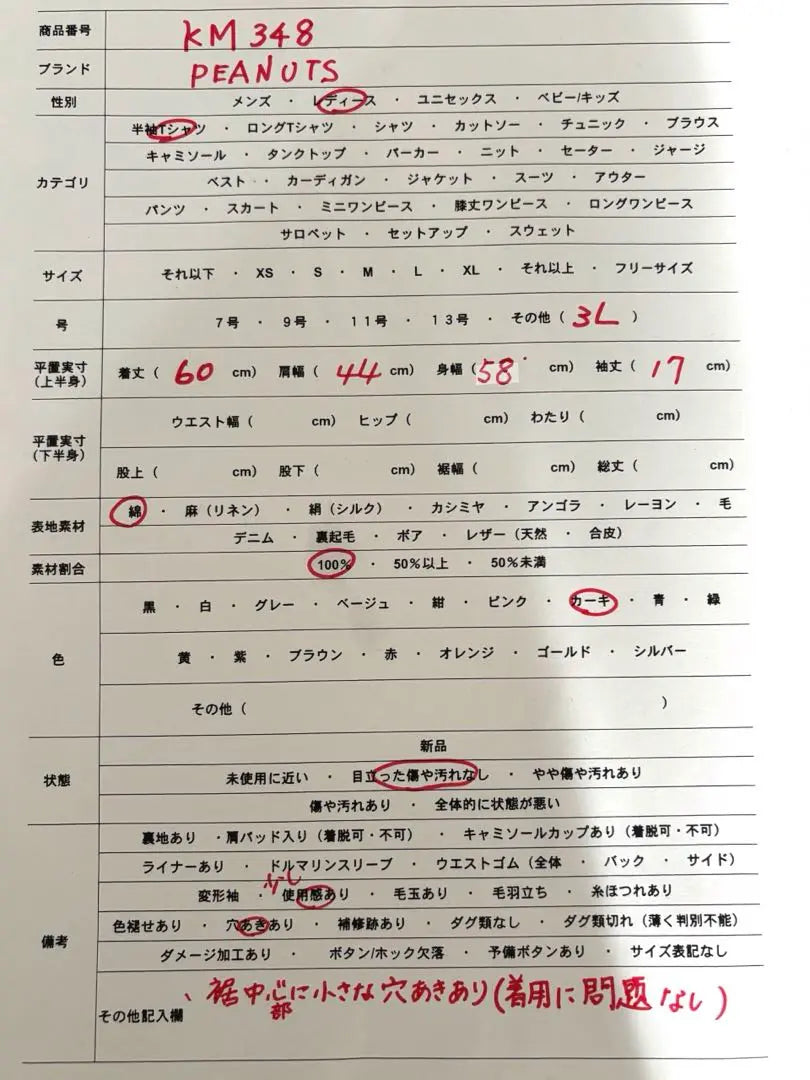 商品番号 KM348
ブランド PEANUTS
性別 メンズ ・ レディース ・ ユニセックス ・ ベビー/キッズ
半袖Tシャツ ・ ロングTシャツ ・ シャツ ・ カットソー ・ チュニック ・ ブラウス
キャミソール ・ タンクトップ ・ パーカー ・ ニット ・ セーター ・ ジャージ
カテゴリ ベスト ・ カーディガン ・ ジャケット ・ スーツ ・ アウター
パンツ ・ スカート ・ ミニワンピース ・ 膝丈ワンピース ・ ロングワンピース
サロペット ・ セットアップ ・ スウェット
サイズ それ以下 ・ XS ・ S ・ M ・ L ・ XL ・ それ以上 ・ フリーサイズ
号 7号 ・ 9号 ・ 11号 ・ 13号 ・ その他（ 3L ）
平置実寸
（上半身） 着丈（ 60 cm） 肩幅（ 44 cm） 身幅（ 58 cm） 袖丈（ 17 cm）
ウエスト幅（ cm） ヒップ（ cm） わたり（ cm）
平置実寸
（下半身）
股上（ cm） 股下（ cm） 裾幅（ cm） 総丈（ cm）
表地素材 綿 ・ 麻（リネン） ・ 絹（シルク） ・ カシミヤ ・ アンゴラ ・ レーヨン ・ 毛
デニム ・ 裏起毛 ・ ボア ・ レザー（天然 ・ 合皮）
素材割合 100% ・ 50%以上 ・ 50%未満
黒 ・ 白 ・ グレー ・ ベージュ ・ 紺 ・ ピンク ・ カーキ ・ 青 ・ 緑
色 黄 ・ 紫 ・ ブラウン ・ 赤 ・ オレンジ ・ ゴールド ・ シルバー
その他（ ）
新品
状態 未使用に近い ・ 目立った傷や汚れなし ・ やや傷や汚れあり
傷や汚れあり ・ 全体的に状態が悪い
裏地あり ・肩パッド入り（着脱可・不可） ・ キャミソールカップあり（着脱可・不可）
ライナーあり ・ ドルマリンスリーブ ・ ウエストゴム（全体 ・ バック ・ サイド）
少し
変形袖 ・ 使用感あり ・ 毛玉あり ・ 毛羽立ち ・ 糸ほつれあり
備考 色褪せあり ・ 穴あきあり ・ 補修跡あり ・ ダグ類なし ・ ダグ類切れ（薄く判別不能）
ダメージ加工あり ・ ボタン/ホック欠落 ・ 予備ボタンあり ・ サイズ表記なし
、裾中心部に小さな穴あきあり(着用に問題なし)
その他記入欄